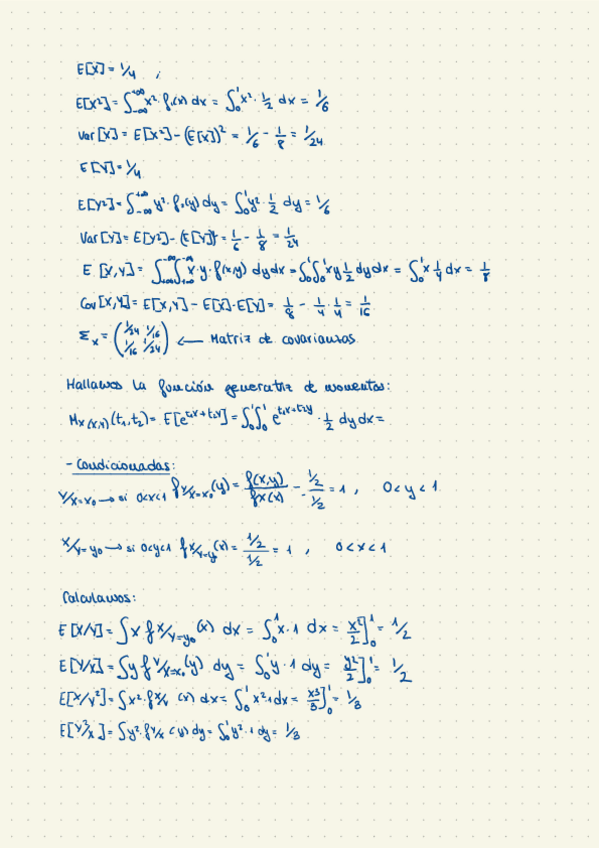 E[X] = 1/4 ,
E[X²] = ∫_{-∞}^{+∞} x² · f₁(x) dx = ∫₀¹ x² · 1/2 dx = 1/6
Var[X] = E[X²] - (E[X])² = 1/6 - 1/8 = 1/24
E[Y] = 1/4
E[Y²] = ∫_{-∞}^{+∞} y² · f₂(y) dy = ∫₀¹ y² · 1/2 dy = 1/6
Var[Y] = E[Y²] - (E[Y])² = 1/6 - 1/8 = 1/24
E[X,Y] = ∫_{+∞}^{-∞} ∫_{+∞}^{-∞} x·y·f(x,y) dydx = ∫₀¹∫₀¹ xy 1/2 dydx = ∫₀¹ x 1/4 dx = 1/8
Cov[X,Y] = E[X,Y] - E[X]·E[Y] = 1/8 - 1/4 · 1/4 = 1/16
Σₓ = (1/24 1/16
1/16 1/24) ← Matriz de covarianzas
Hallamos la función generatriz de momentos:
M_{X(X,Y)}(t₁,t₂) = E[e^{t₁X+t₂Y}] = ∫₀¹∫₀¹ e^{t₁x+t₂y} · 1/2 dy dx =
- Condicionadas:
Y/X=x₀ → si 0<x<1 f_{Y/X=x₀}(y) = f(x,y)/fx(x) = 1/2 / 1/2 = 1 , 0<y<1
X/Y=y₀ → si 0<y<1 f_{X/Y=y}(x) = 1/2 / 1/2 = 1 , 0<x<1
Calculamos:
E[X/Y] = ∫x f_{X/Y=y₀}(x) dx = ∫₀¹ x·1 dx = x²/2]₀¹ = 1/2
E[Y/X] = ∫y f_{Y/X=x₀}(y) dy = ∫₀¹ y·1 dy = y²/2]₀¹ = 1/2
E[X/Y²] = ∫x²·f_{X/Y}(x) dx = ∫₀¹ x²·1dx = x³/3]₀¹ = 1/3
E[Y²/X] = ∫y²·f_{Y/X}(y) dy = ∫₀¹ y²·1 dy = 1/3